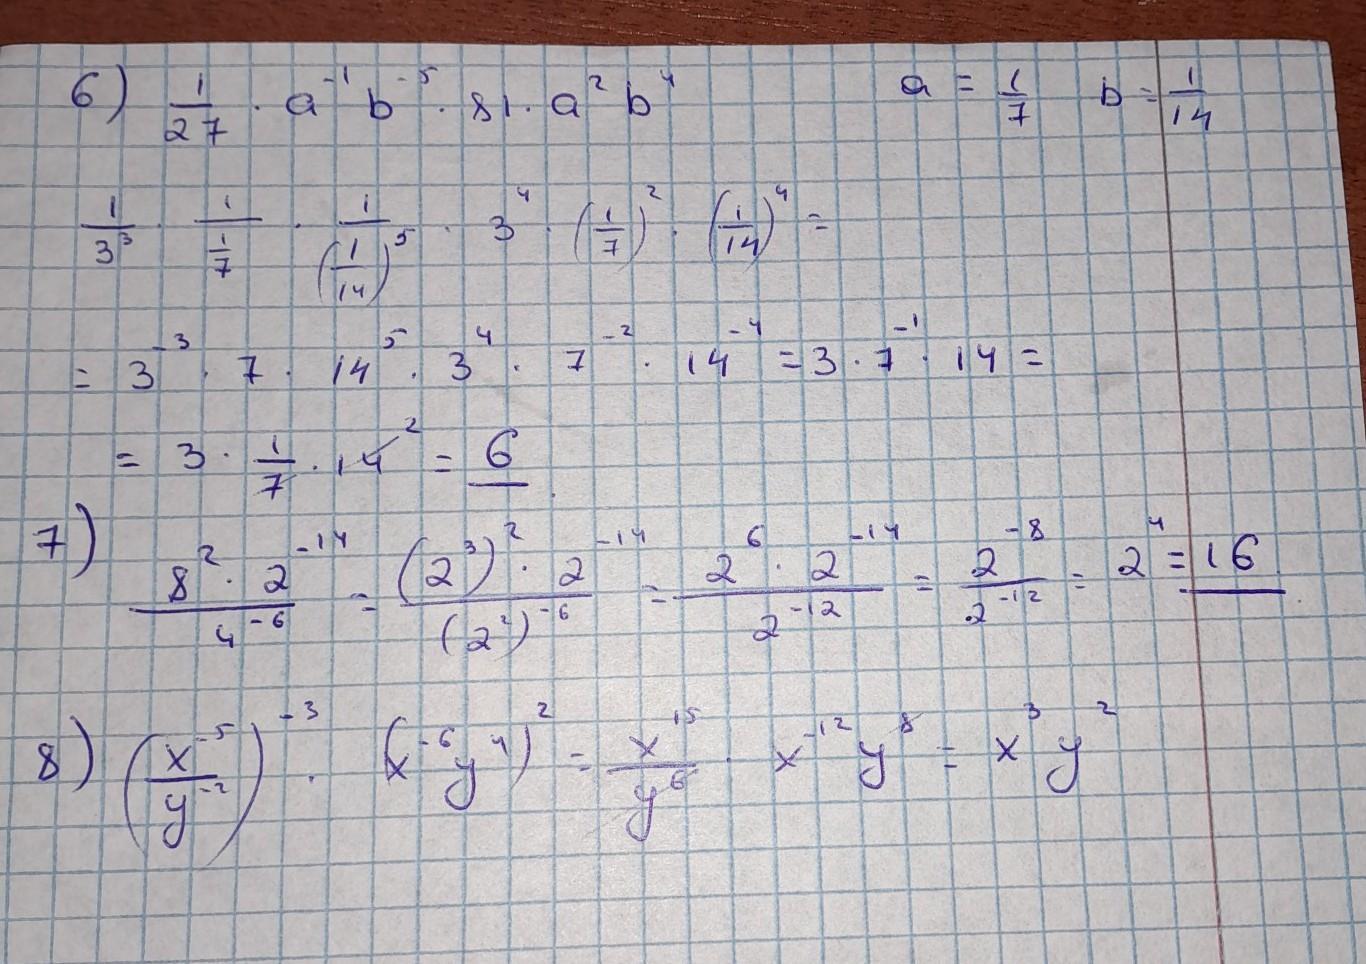 6) 1/27 · a⁻¹ b⁻⁵ · 81 · a² b⁴ a = 1/7 b = 1/14
1/3³ · 1/(1/7) · 1/(1/14)⁵ · 3⁴ · (1/7)² · (1/14)⁴ =
= 3⁻³ · 7 · 14⁵ · 3⁴ · 7⁻² · 14⁻⁴ = 3 · 7⁻¹ · 14 =
= 3 · 1/7 · 14² = 6
7) (8² · 2⁻¹⁴)/4⁻⁶ = ((2³)² · 2⁻¹⁴)/(2²)⁻⁶ = (2⁶ · 2⁻¹⁴)/2⁻¹² = 2⁻⁸/2⁻¹² = 2⁴ = 16
8) (x⁻⁵/y⁻²)⁻³ · (x⁻⁶y⁴)² = x¹⁵/y⁶ · x⁻¹² y⁸ = x³ y²